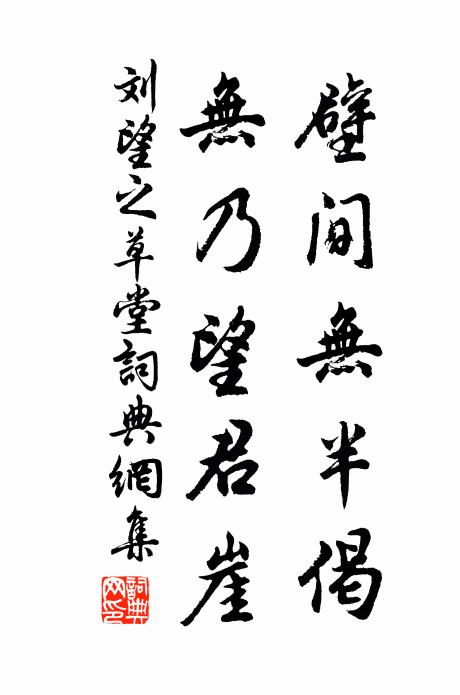 壁间無半偈
無乃望君崖
刘望之草堂詞典網集
詞典網印